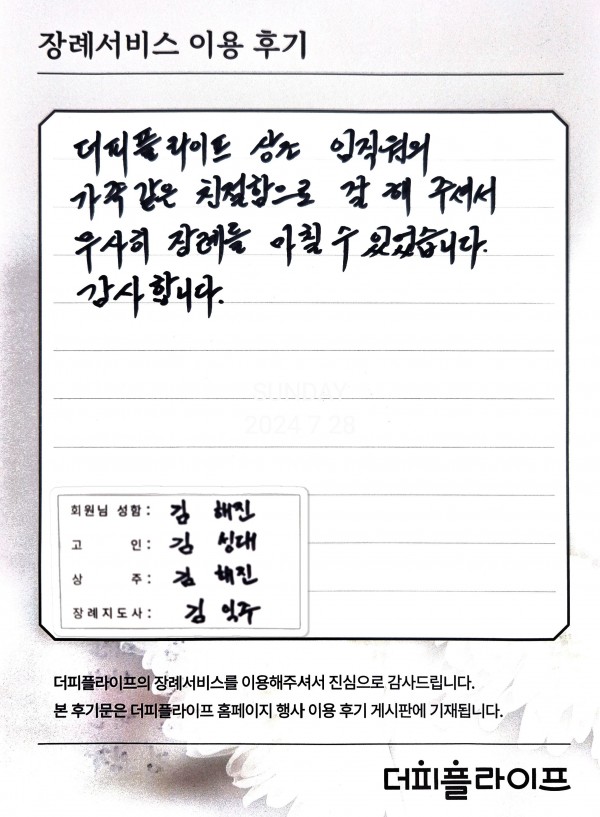 장례서비스 이용 후기
더피플라이프 상조 임직원의
가족같은 친절함으로 잘 해 주셔서
무사히 장례를 마칠 수 있었습니다.
감사합니다.
SUNDAY
2024 7 28
회원님 성함 : 김 해진
고 인 : 김 성대
상 주 : 김 해진
장례지도사 : 김 익주
더피플라이프의 장례서비스를 이용해주셔서 진심으로 감사드립니다.
본 후기문은 더피플라이프 홈페이지 행사 이용 후기 게시판에 기재됩니다.
더피플라이프